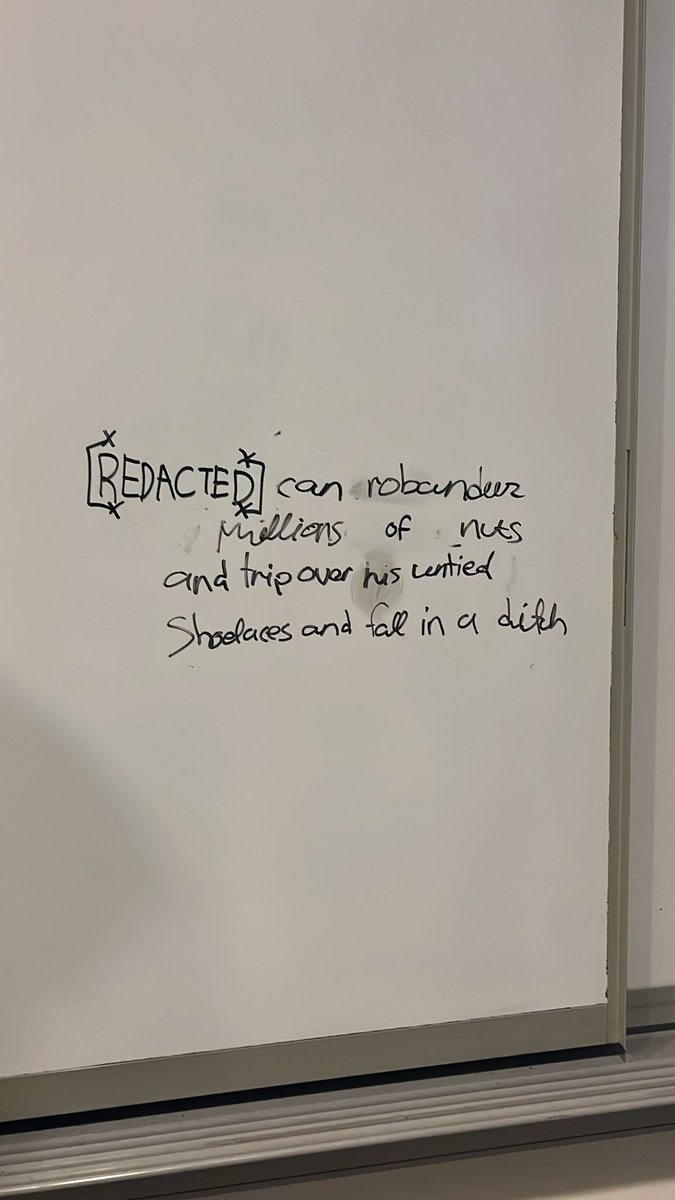 [REDACTED] can
millions of nuts
and trip over his untied
Shoelaces and fall in a ditch